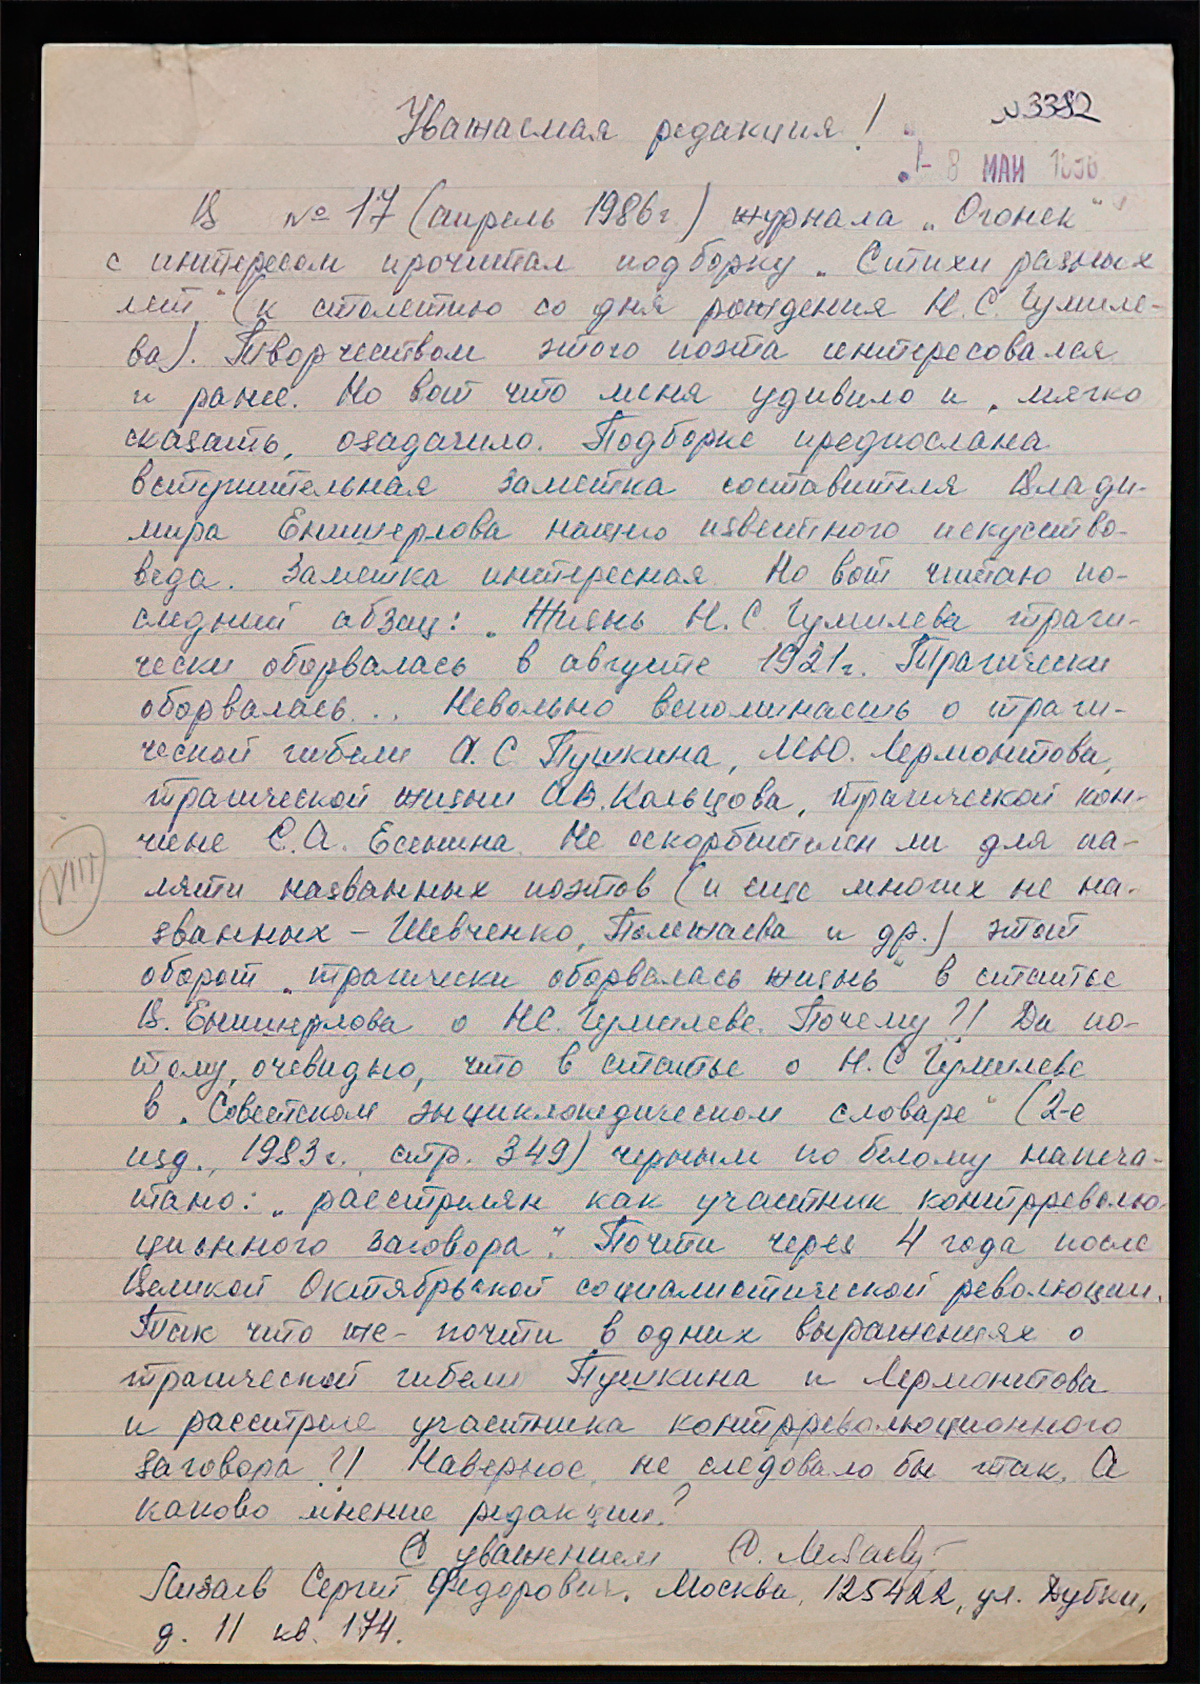 №3382
Уважаемая редакция!
- 8 МАЙ 1986
В № 17 (апрель 1986г.) журнала „Огонек"
с интересом прочитал подборку „Стихи разных
лет" (к столетию со дня рождения Н.С. Гумиле-
ва). Творчеством этого поэта интересовался
и ранее. Но вот что меня удивило и, мягко
сказать, озадачило. Подборке предпослана
вступительная заметка составителя Влади-
мира Енишерлова нашего известного искусство-
веда. Заметка интересная. Но вот читаю по-
следний абзац: „Жизнь Н.С. Гумилева траги-
чески оборвалась в августе 1921г. Трагически
оборвалась... Невольно вспоминаешь о траги-
ческой гибели А.С. Пушкина, М.Ю. Лермонтова,
трагической жизни А.В. Кольцова, трагической кон-
чине С.А. Есенина. Не оскорбителен ли для па-
VIII
мяти названных поэтов (и еще многих не на-
званных – Шевченко, Полежаева и др.) этот
оборот „трагически оборвалась жизнь" в статье
В. Енишерлова о Н.С. Гумилеве. Почему?! Да по-
тому, очевидно, что в статье о Н.С Гумилеве
в „Советском энциклопедическом словаре" (2-е
изд., 1983г., стр. 349) черным по белому напеча-
тано: „расстрелян как участник контрреволю-
ционного заговора". Почти через 4 года после
Великой Октябрьской социалистической революции.
Так что же – почти в одних выражениях о
трагической гибели Пушкина и Лермонтова
и расстреле участника контрреволюционного
заговора?!! Наверное, не следовало бы так. А
каково мнение редакции?
С уважением
Сергей Федорович. Москва, 125422, ул. Дубки,
д. 11 кв. 174.